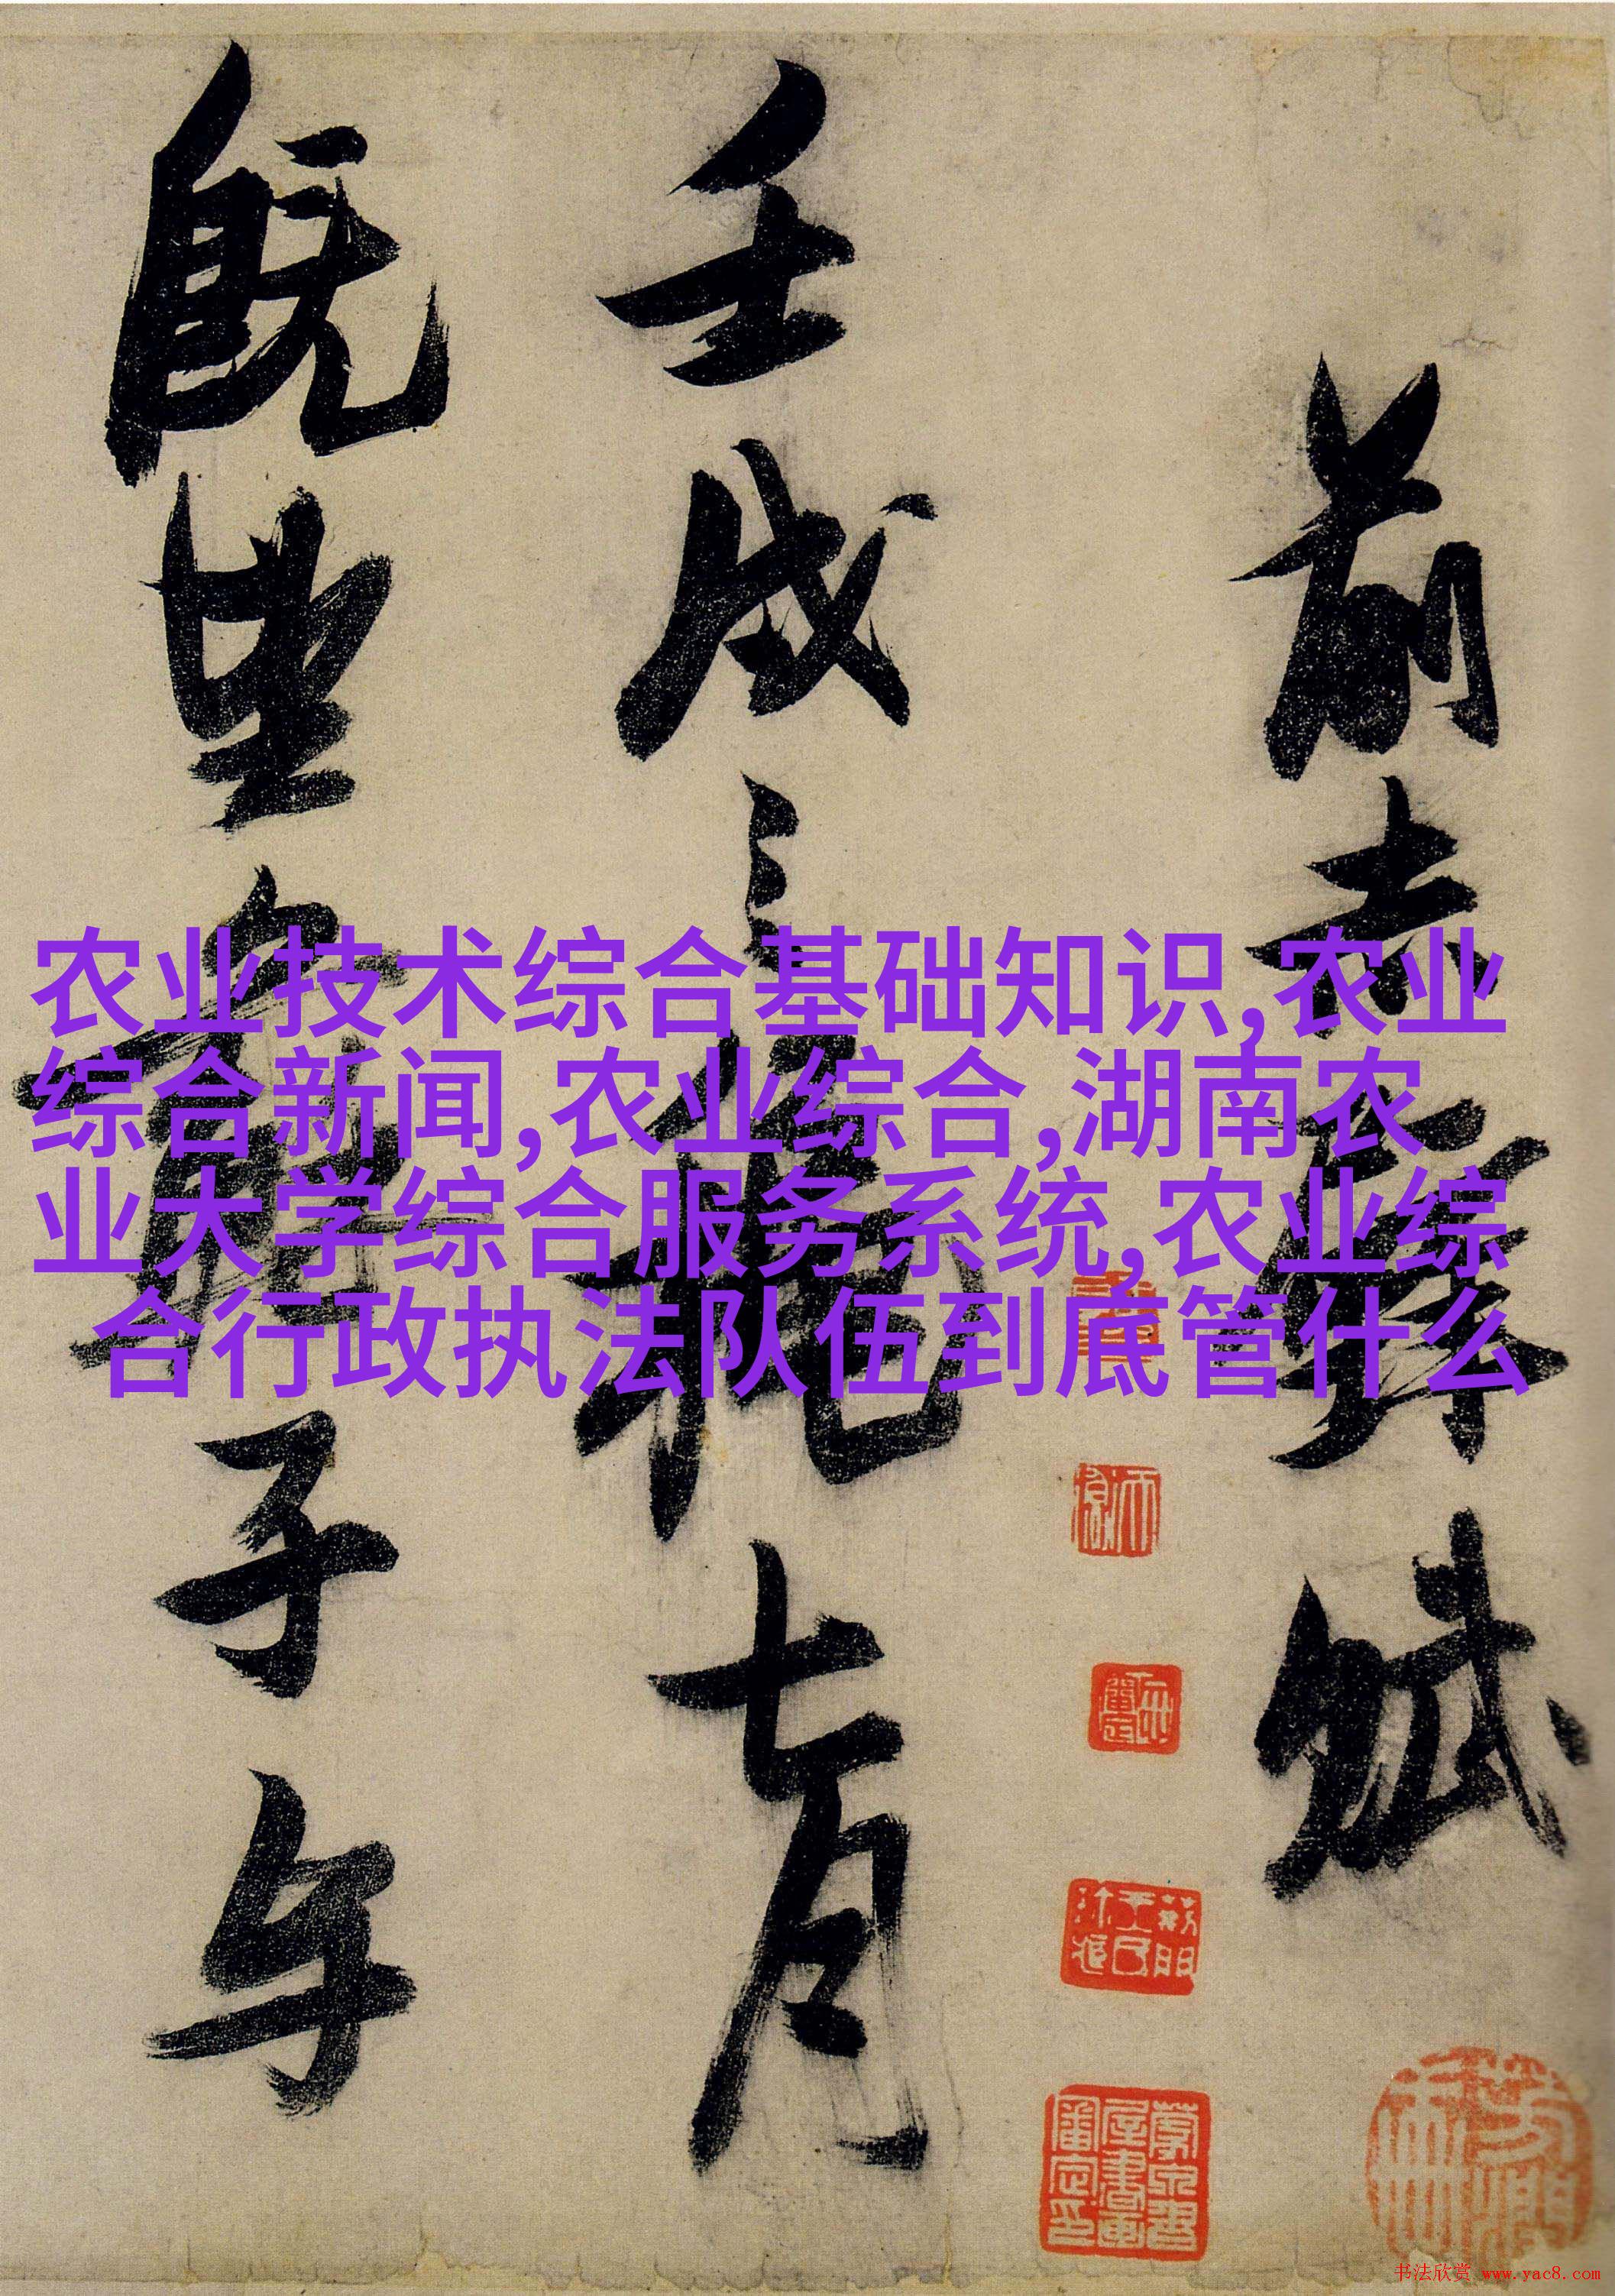 前赤壁賦
壬戌之秋七月
既望蘇子与
农业技术综合基础知识,农业
综合新闻,农业综合,湖南农
业大学综合服务系统,农业综
合行政执法队伍到底管什么
蒙泉書屋書畫審定印
书法欣赏 www.yac8.com